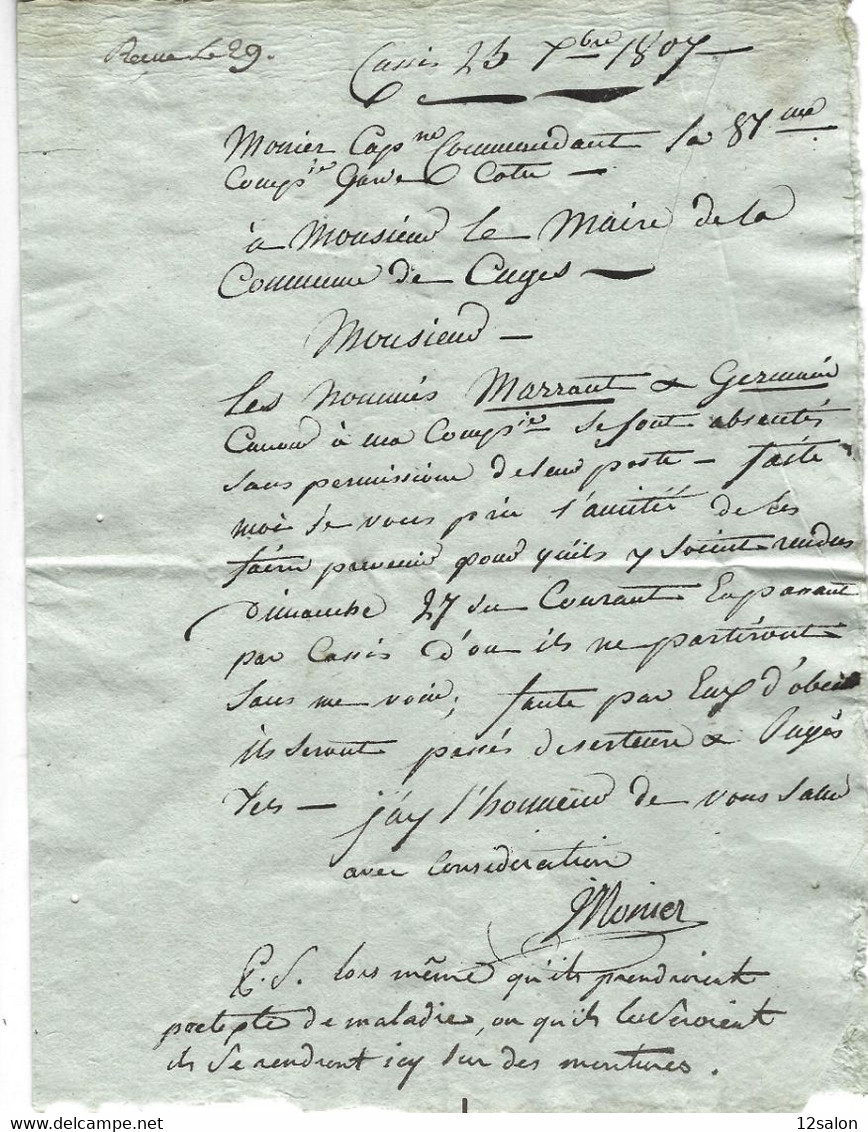 Recue Le 29.
Cassis 25 Xbre 1807
Monier Capne Commandant la 87me
Compie Garde Cote
à Monsieur le Maire de la
Commune de Cuges
Monsieur
Les Nommés Marrant & Germain
Canon à ma Compie se sont absentés
sans permissione de leur poste - faite
moi Je vous prie l'amitié de les
faire prevenir pour qu'ils y soient rendus
Dimanche 27 du Courant En passant
par Cassis d'ou ils ne partiront
sans me voir; faute par Eux d'obeir
ils seront passés deserteurs & Jugés
Tels - j'ay l'honneur de vous saluer
avec Consideration
Monier
P.S. lors même qu'ils prendroient
pretexte de maladie, ou qu'ils le seroient
ils se rendront icy sur des montures.
12salon